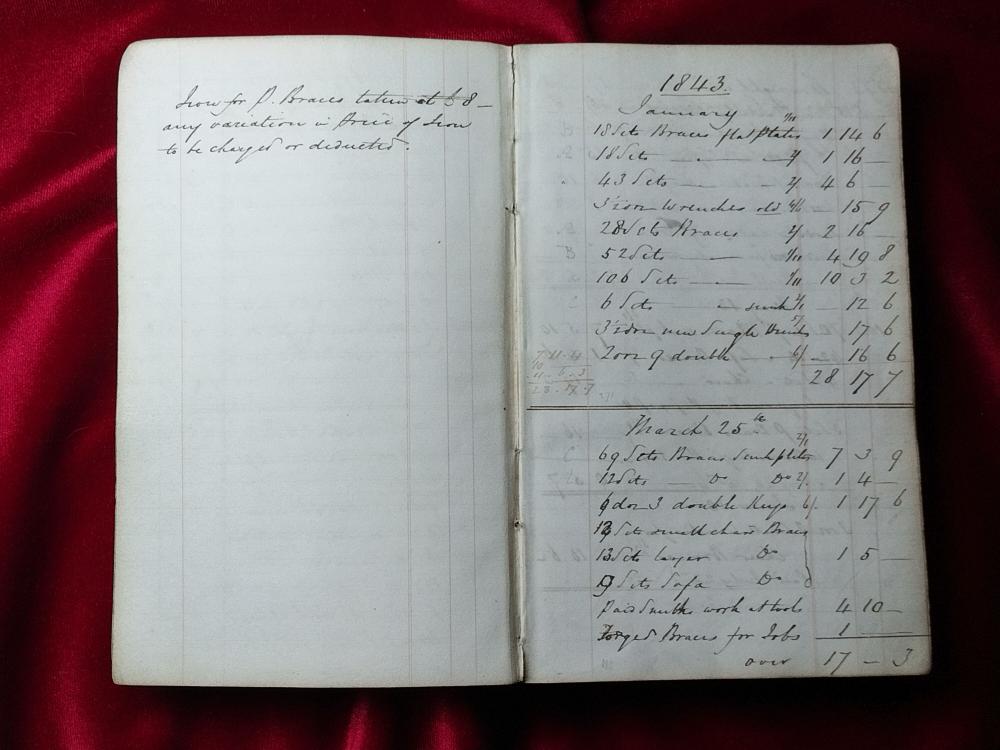 Iron for P. Braces taken at £8 —
any variation in price of Iron
to be charged or deducted.
1843.
January
18 Sets Braces flat plates 1/11 1 14 6
18 Sets — — 2/ 1 16 —
43 Sets — 2/ 4 6 —
3½ doz wrenches old 4/6 — 15 9
28 Sets Braces 2/ 2 16 —
52 Sets — 1/11 4 19 8
106 Sets — 1/11 10 3 2
6 Sets — sunk 2/1 — 12 6
3½ doz new Single 5/ 17 6
2 doz 9 double 6/ — 16 6
28 17 7
March 25th
69 Sets Braces Sunk plates 2/1 7 3 9
12 Sets — Do Do 2/ 1 4 —
6 doz 3 double Keys 6/ 1 17 6
Sets small chair Braces
13 Sets larger Do 1 5 —
9 Sets Sofa Do
Paid Smiths work & tools 4 10 —
Forged Braces for Jobs 1
over 17 — 3